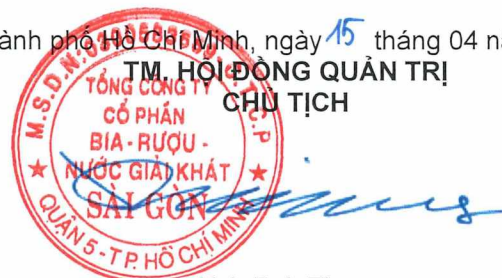 ành phố Hồ Chí Minh, ngày 15 tháng 04 n
TM. HỘI ĐỒNG QUẢN TRỊ
CHỦ TỊCH
TỔNG CÔNG TY
CỔ PHẦN
BIA - RƯỢU -
NƯỚC GIẢI KHÁT
SÀI GÒN
QUẬN 5 - T P. HỒ CHÍ MINH